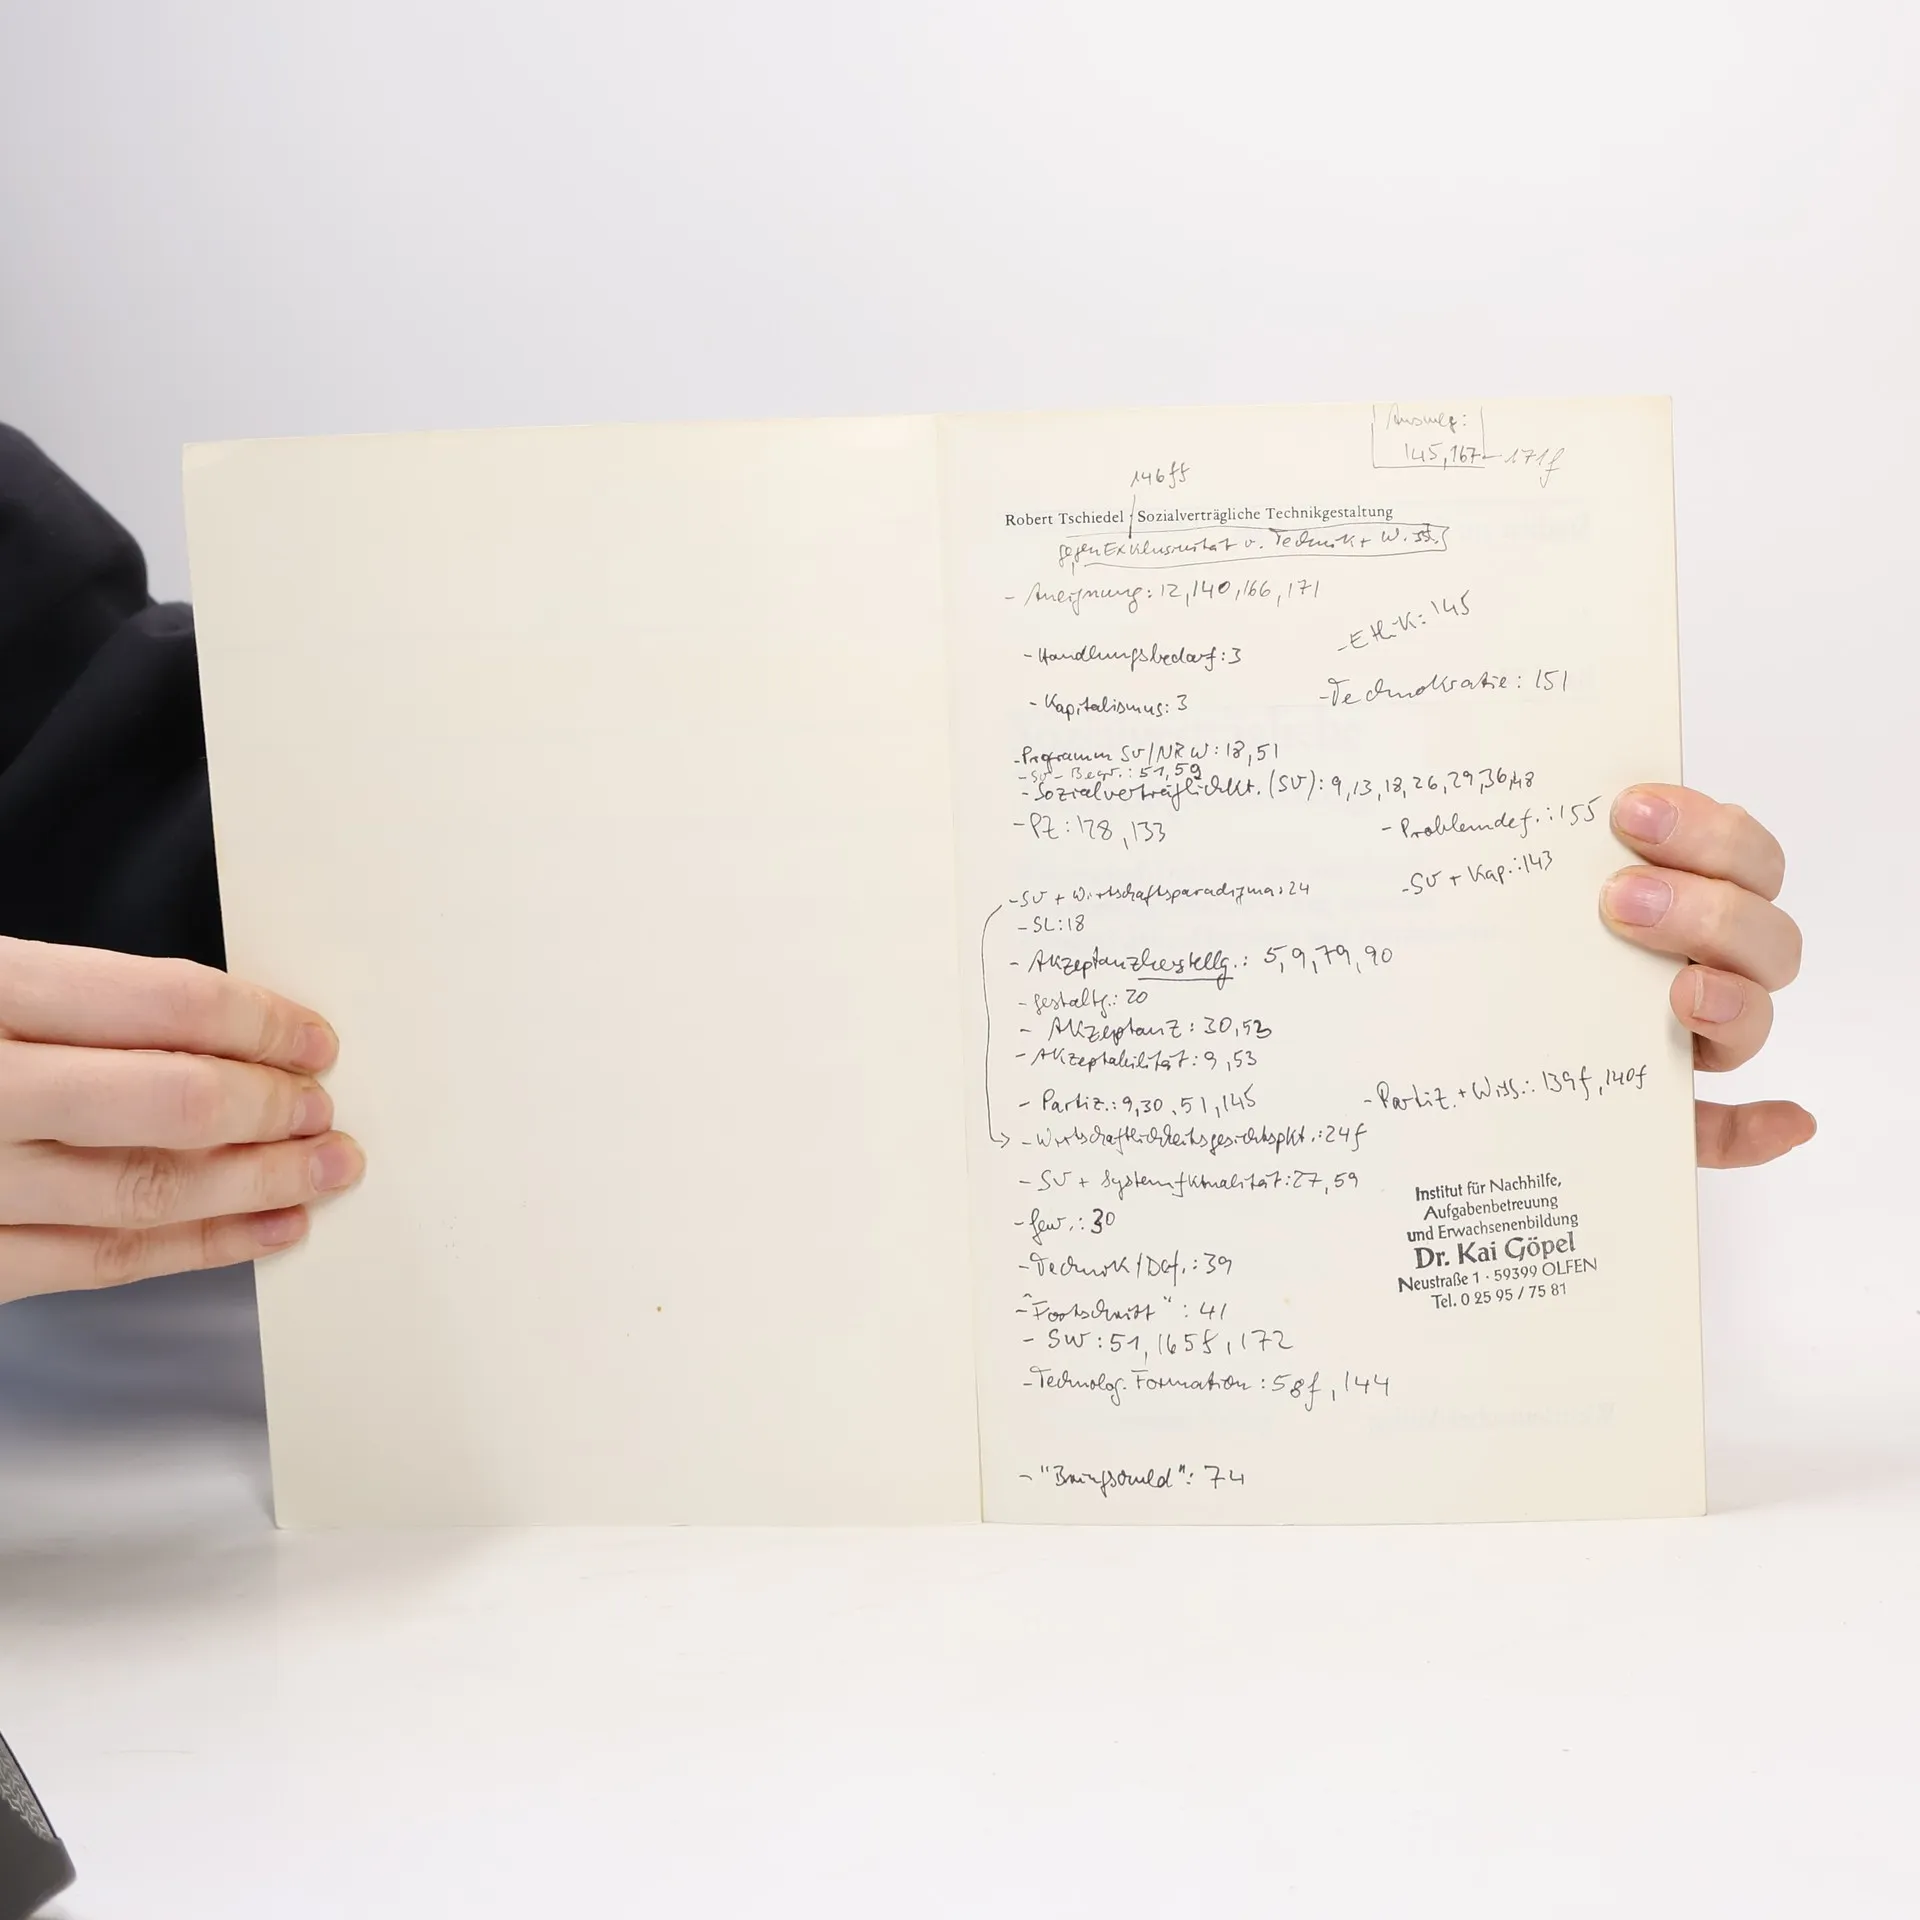 Ausweg:
145, 167 - 171f
146ff
Robert Tschiedel · Sozialverträgliche Technikgestaltung
gegen Exklusivität v. Technik + W.
- Aneignung: 12, 140, 166, 171
- Ethik: 145
- Handlungsbedarf: 3
- Technokratie: 151
- Kapitalismus: 3
- Programm SV/NRW: 18, 51
- SV - Begr.: 51, 59
- Sozialverträglichkt. (SV): 9, 13, 18, 26, 29, 36, 48
- PZ: 128, 133
- Problemdef.: 155
- SV + Kap.: 143
- SV + Wirtschaftsparadigma: 24
- SL: 18
- Akzeptanzherstellg.: 5, 9, 79, 90
- Gestaltg.: 20
- Akzeptanz: 30, 53
- Akzeptabilität: 9, 53
- Partiz.: 9, 30, 51, 145
- Partiz. + Wiss.: 139f, 140f
- Wirtschaftlichkeitsgesichtspkt.: 24f
- SV + Systemfktnalität: 27, 59
- Gew.: 30
- Technik/Def.: 39
- "Fortschritt": 41
- SW: 51, 165f, 172
- Technolog. Formation: 58f, 144
- "Bringschuld": 74
Institut für Nachhilfe,
Aufgabenbetreuung
und Erwachsenenbildung
Dr. Kai Göpel
Neustraße 1 · 59399 OLFEN
Tel. 0 25 95 / 75 81